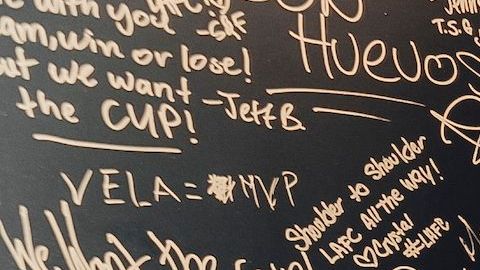 with you
-CAF
am, win or lose!
but we want
the CUP!
-Jeff B.
ON
HUEVOS
T.S.G.
VELA = MVP
Shoulder to Shoulder
LAFC All THE WAY!
♡Crystal
#LAFC
We Want the